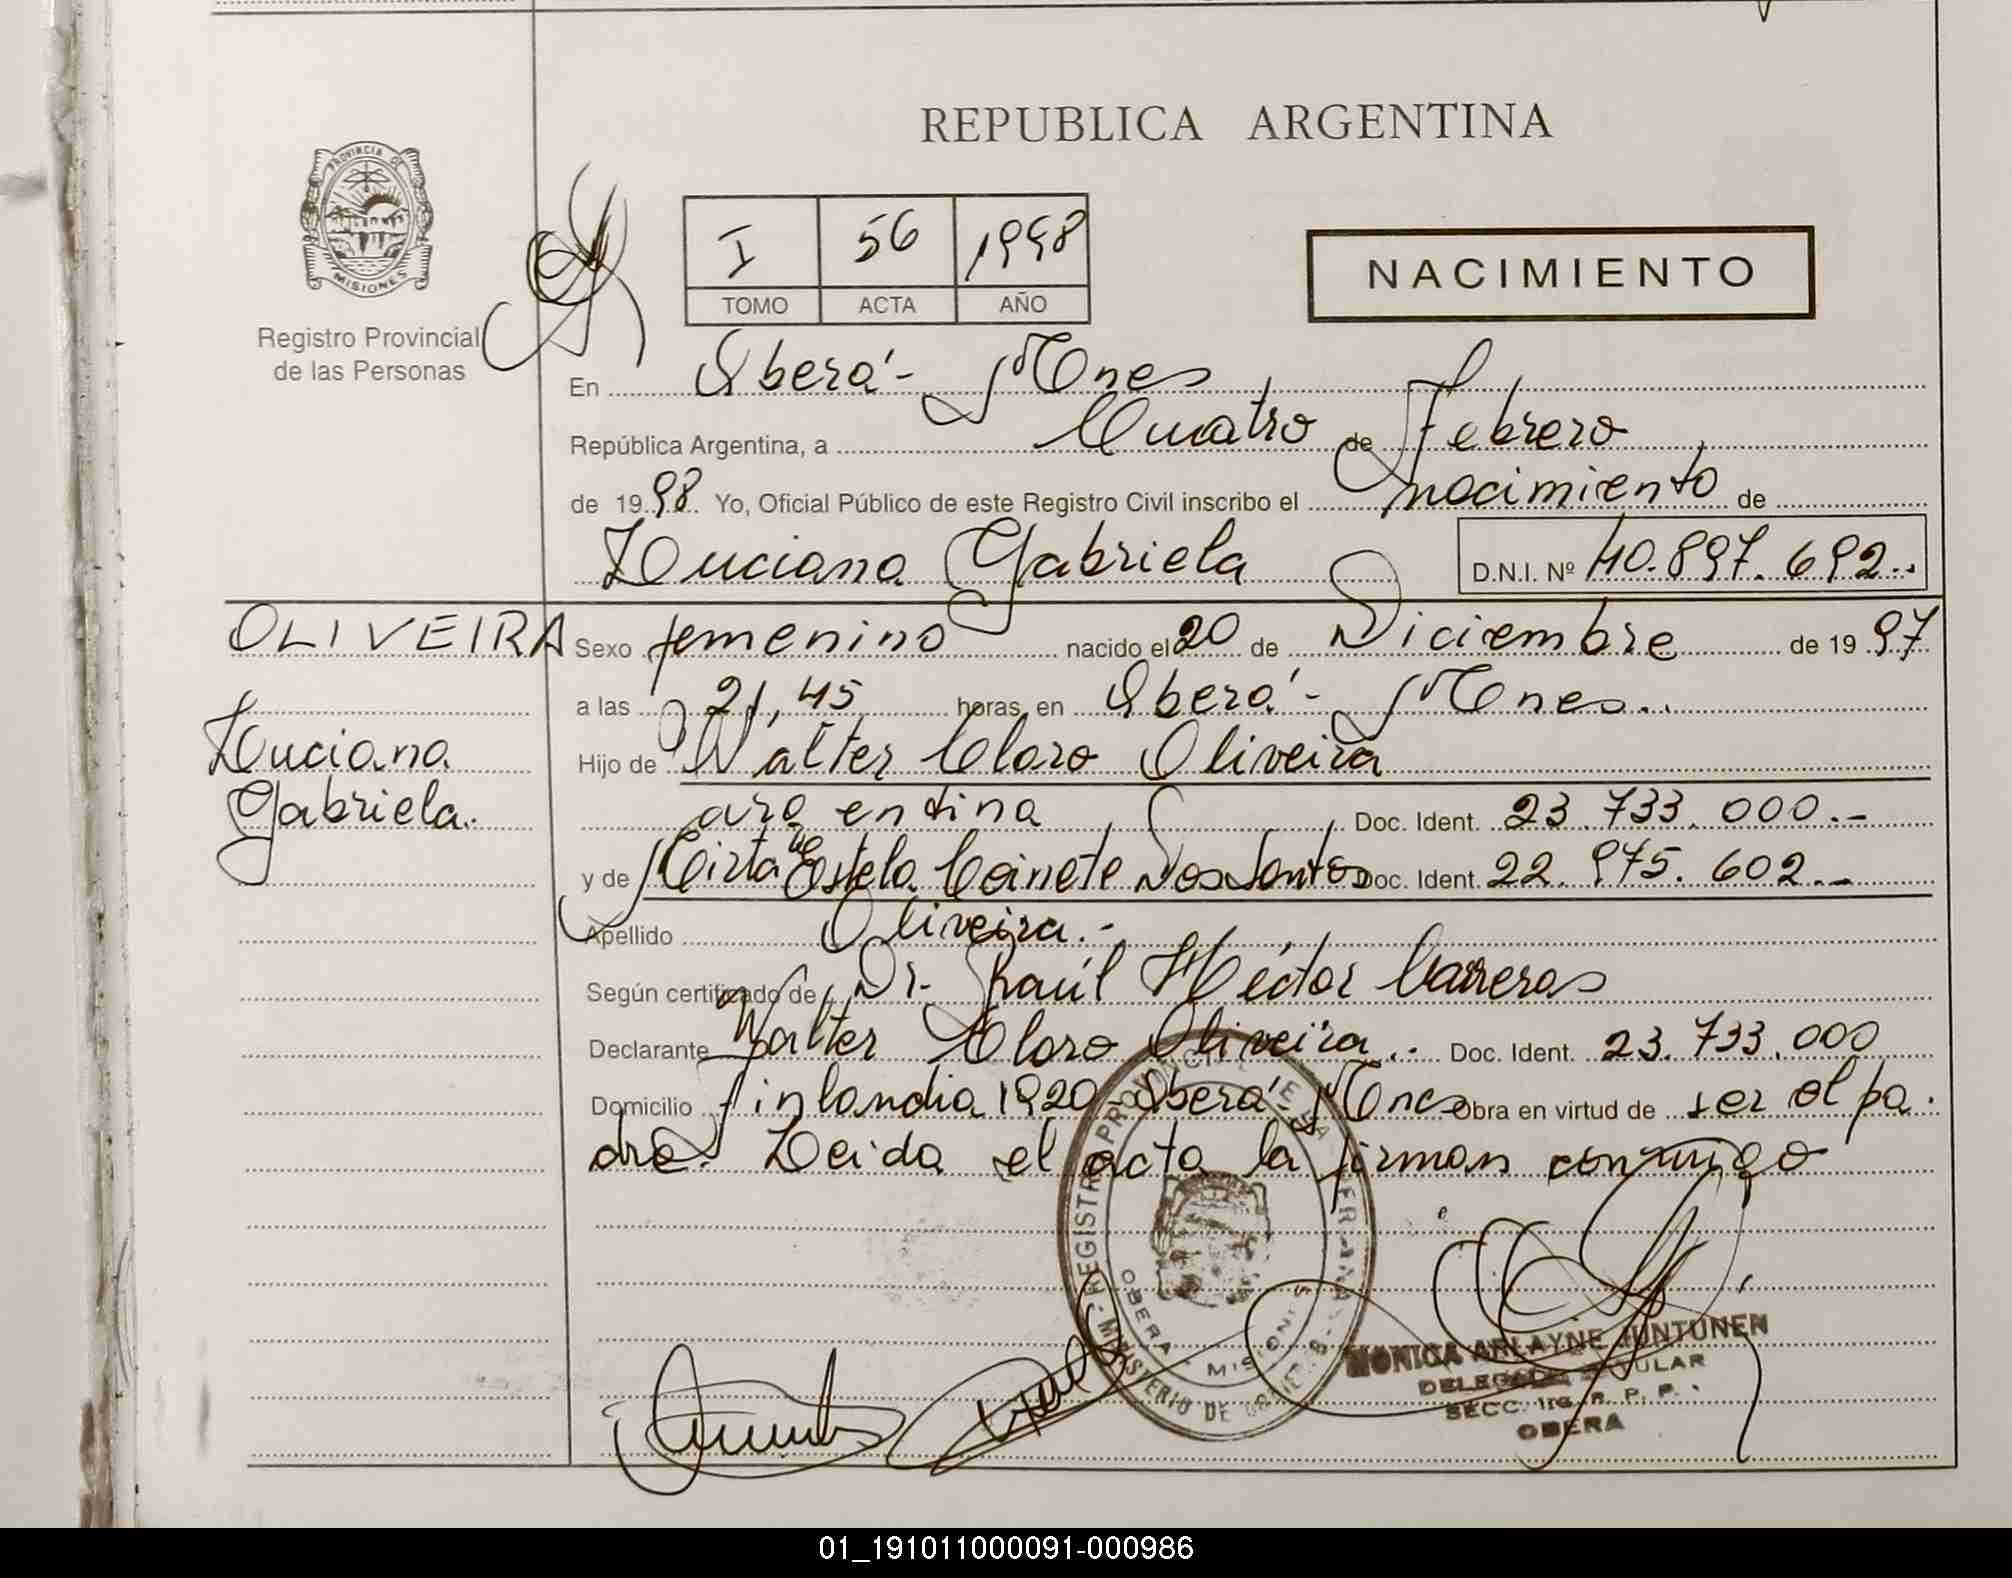 REPUBLICA ARGENTINA
PROVINCIA DE
MISIONES
Registro Provincial
de las Personas
I 56 1998
TOMO ACTA AÑO
NACIMIENTO
En Oberá - Mnes
República Argentina, a Cuatro de Febrero
de 1998 Yo, Oficial Público de este Registro Civil inscribo el nacimiento de
Luciana Gabriela D.N.I. Nº 40.897.692..
OLIVEIRA
Luciana
Gabriela.
Sexo femenino nacido el 20 de Diciembre de 1997
a las 21,45 horas en Oberá - Mnes..
Hijo de Walter Claro Oliveira
argentina Doc. Ident. 23.733.000.-
y de Mirta Estela Dos Santos Doc. Ident. 22.975.602.-
Apellido Oliveira.-
Según certificado de Dr. Raúl Héctor Carreras
Declarante Walter Claro Oliveira.. Doc. Ident. 23.733.000
Domicilio Finlandia 1920 - Oberá - Mnes Obra en virtud de ser el pa.
dre. Leida el acta la firman conmigo
REGISTRO PROVINCIAL DE LA
OBERA - MISIONES
MINISTERIO DE
MONICA ARLAYNE JUNTUNEN
DELEGADA TITULAR
SECC. 1ra. R. P. P.
OBERA
01_191011000091-000986